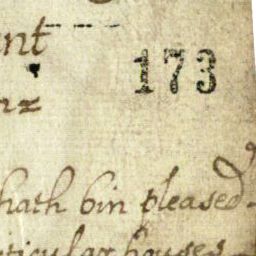 nt
173
hath bin pleased
ticular houses